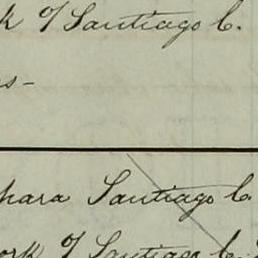 k of Santiago C.
s-
hara Santiago C
ork of Santiago C.